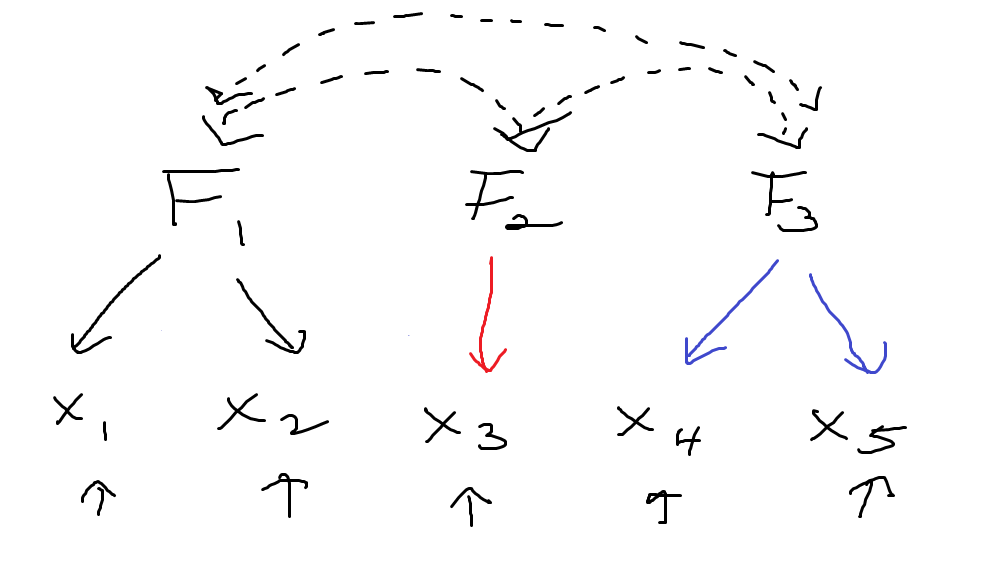 F1 F2 F3
x1 x2 x3 x4 x5